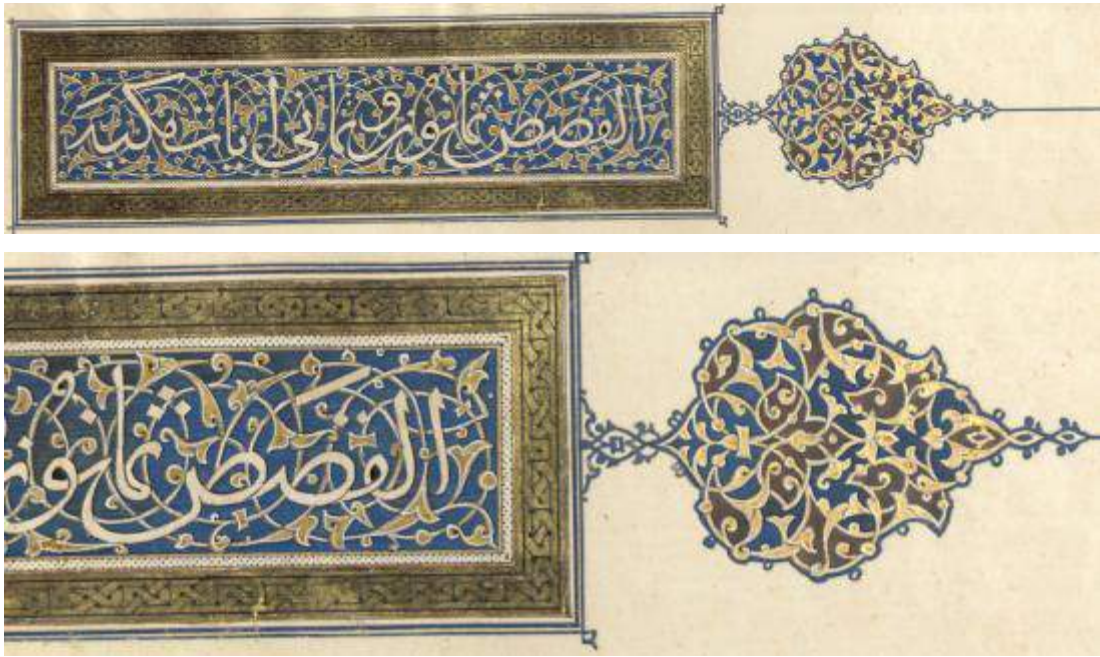 القصص ثمانون وثمانى ايات مكية
القصص ثمانون